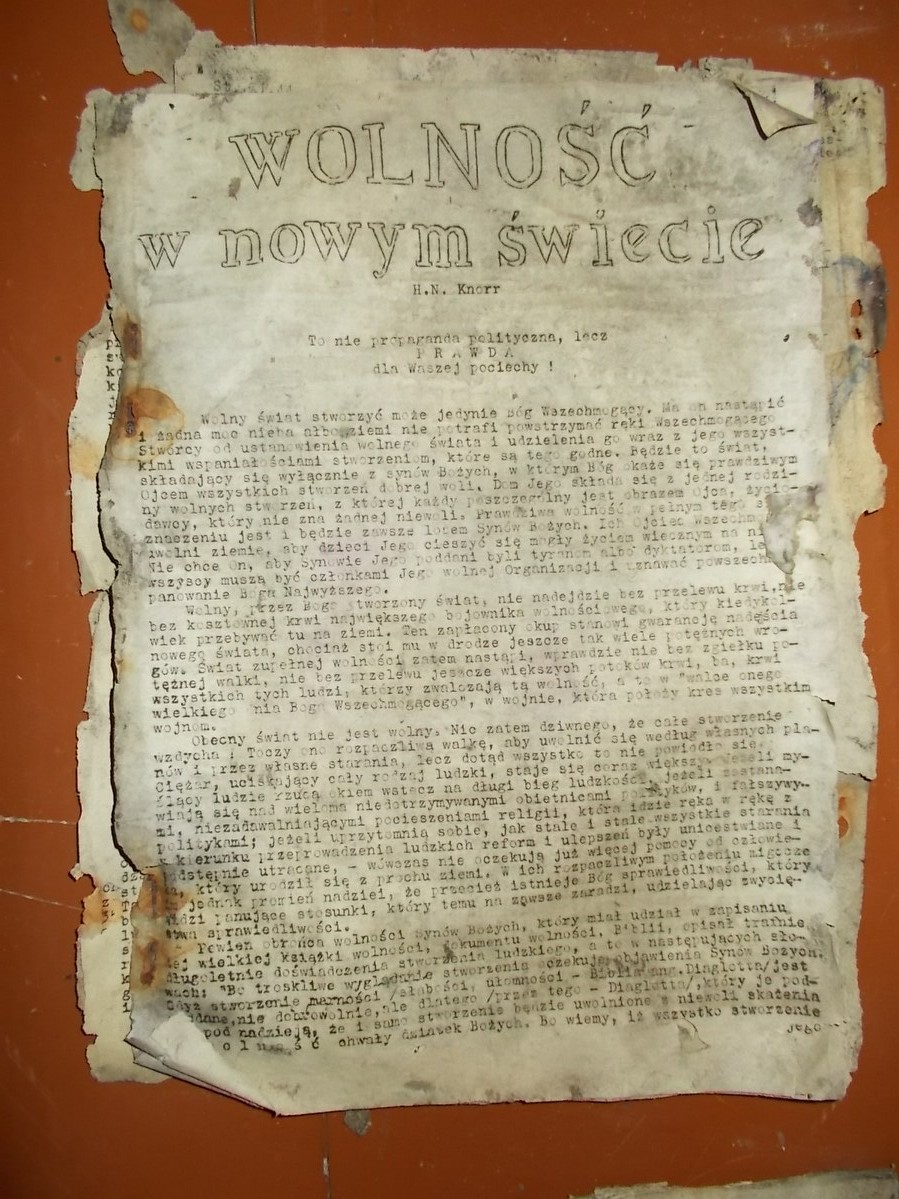 WOLNOŚĆ
w nowym świecie
H.N. Knorr
To nie propaganda polityczna, lecz
P R A W D A
dla Waszej pociechy !
Wolny świat stworzyć może jedynie Bóg Wszechmogący. Ma on nastąpić
i żadna moc nieba albo ziemi nie potrafi powstrzymać ręki Wszechmogącego
Stwórcy od ustanowienia wolnego świata i udzielenia go wraz z jego wszyst-
kimi wspaniałościami stworzeniom, które są tego godne. Będzie to świat,
składający się wyłącznie z synów Bożych, w którym Bóg okaże się prawdziwym
Ojcem wszystkich stworzeń dobrej woli. Dom Jego składa się z jednej rodzi-
ny wolnych stworzeń, z której każdy poszczególny jest obrazem Ojca, życio-
dawcy, który nie zna żadnej niewoli. Prawdziwa wolność w pełnym tego
znaczeniu jest i będzie zawsze losem Synów Bożych. Ich Ojciec
uwolni ziemię, aby dzieci Jego cieszyć się mogły życiem wiecznym na
Nie chce On, aby Synowie Jego poddani byli tyranom albo dyktatorom,
wszyscy muszą być członkami Jego wolnej Organizacji i uznawać
panowanie Boga Najwyższego.
Wolny, przez Boga stworzony świat, nie nadejdzie bez przelewu krwi, nie
bez kosztownej krwi największego bojownika wolnościowego, który kiedykol-
wiek przebywać tu na ziemi. Ten zapłacony okup stanowi gwarancję nadejścia
nowego świata, chociaż stoi mu w drodze jeszcze tak wiele potężnych wro-
gów. Świat zupełnej wolności zatem nastąpi, wprawdzie nie bez zgiełku po-
tężnej walki, nie bez przelewu jeszcze większych potoków krwi, ba, krwi
wszystkich tych ludzi, którzy zwalczają tą wolność, a to w "walce onego
wielkiego nia Boga Wszechmogącego", w wojnie, która położy kres wszystkim
wojnom.
Obecny świat nie jest wolny. Nic zatem dziwnego, że całe stworzenie
wzdycha ! Toczy ono rozpaczliwą walkę, aby uwolnić się według własnych pla-
nów i przez własne starania, lecz dotąd wszystko to nie powiodło się.
Ciężar, uciskający cały rodzaj ludzki, staje się coraz większy. Jeżeli my-
ślący ludzie rzucą okiem wstecz na długi bieg ludzkości, jeżeli zastana-
wiają się nad wieloma niedotrzymywanymi obietnicami polityków, i fałszywy-
mi, niezadawalniającymi pocieszeniami religii, która idzie ręka w rękę z
politykami; jeżeli uprzytomnią sobie, jak stale i stale wszystkie starania
w kierunku przeprowadzenia ludzkich reform i ulepszeń były unicestwiane i
podstępnie utracane, - wówczas nie oczekują już więcej pomocy od człowie-
ka, który urodził się z prochu ziemi. W ich rozpaczliwym położeniu migocze
jednak promień nadziei, że przecież istnieje Bóg sprawiedliwości, który
widzi panujące stosunki, który temu na zawsze zaradzi, udzielając zwycię-
stwa sprawiedliwości.
Pewien obrońca wolności Synów Bożych, który miał udział w zapisaniu
tej wielkiej książki wolności, dokumentu wolności, Biblii, opisał trafnie
długoletnie doświadczenia stworzenia ludzkiego, a to w następujących sło-
wach: "Bo troskliwe wyglądanie stworzenia oczekują objawienia Synów Bożych.
Gdyż stworzenie marności /słabości, ułomności - Diaglotta/jest
poddane,nie dobrowolnie,ale dlatego /przez tego - Diaglotta/,który je pod-
pod nadzieją, że i samo stworzenie będzie uwolnione z niewoli skażenia
chwały dziatek Bożych. Bo wiemy, iż wszystko stworzenie
jego